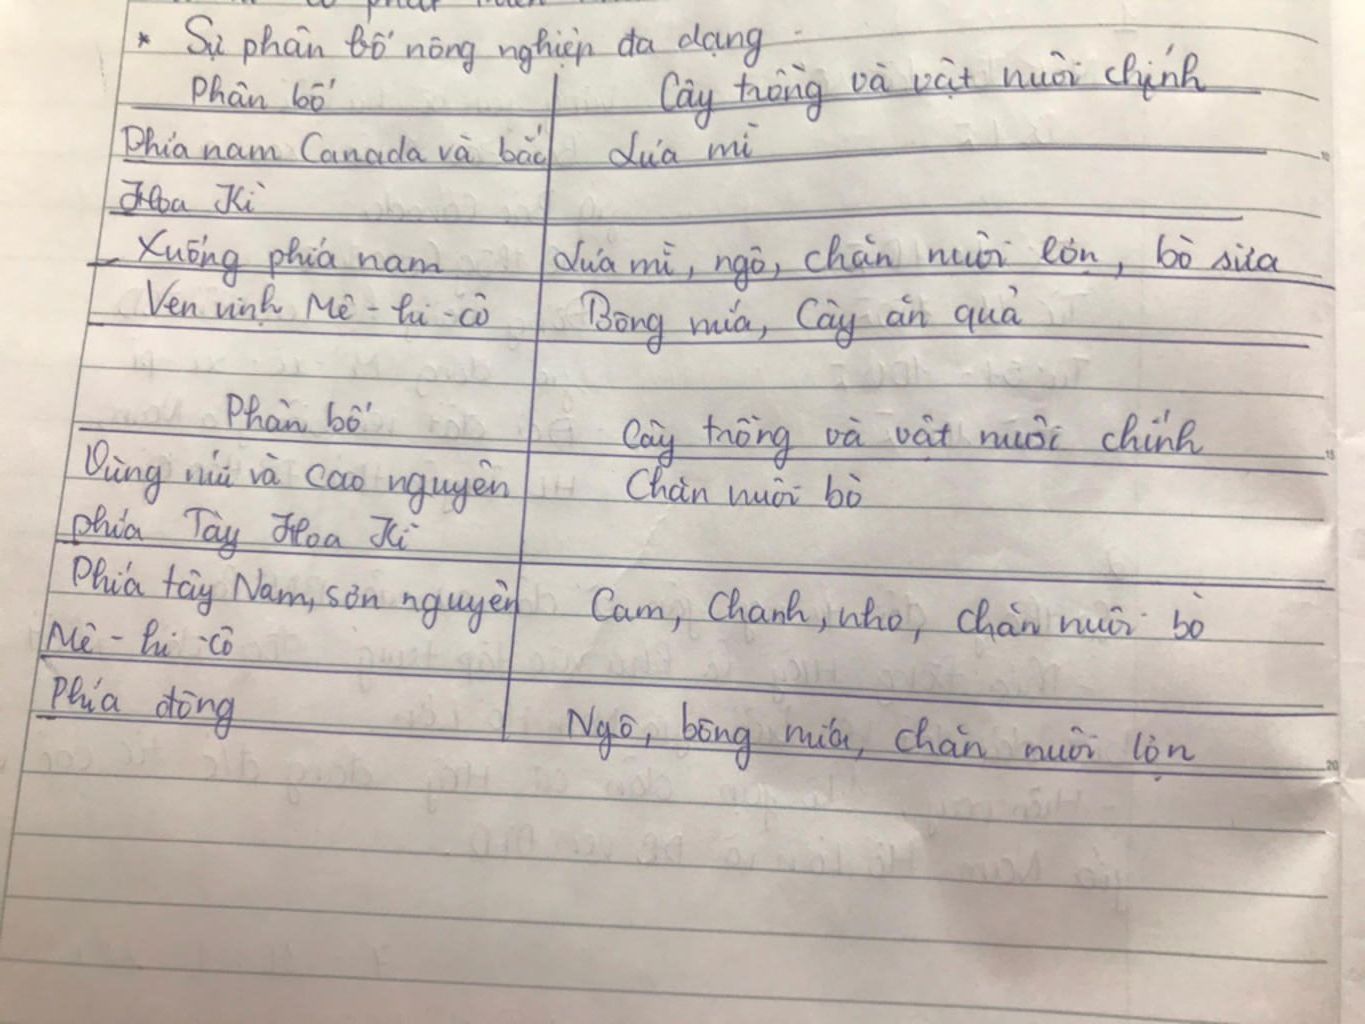 * Sự phân bố nông nghiệp đa dạng
Phân bố Cây trồng và vật nuôi chính
Phía nam Canada và bắc Lúa mì
Hoa Kì
Xuống phía nam Lúa mì, ngô, chăn nuôi lợn, bò sữa
Ven vịnh Mê-hi-cô Bông mía, Cây ăn quả
Phân bố Cây trồng và vật nuôi chính
Vùng núi và cao nguyên Chăn nuôi bò
phía Tây Hoa Kì
Phía tây Nam, sơn nguyên Cam, Chanh, nho, chăn nuôi bò
Mê-hi-cô
Phía đông Ngô, bông mía, chăn nuôi lợn